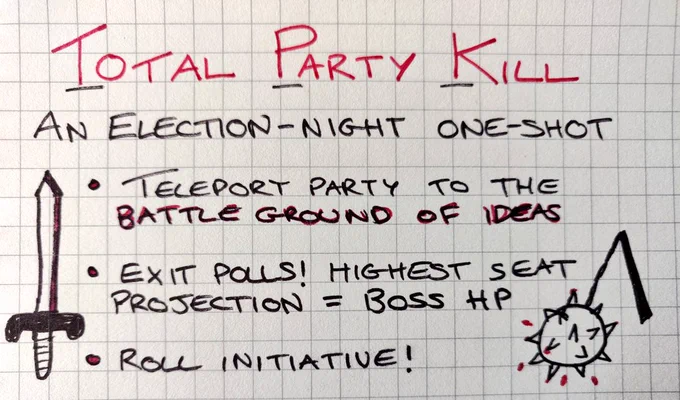 TOTAL PARTY KILL
AN ELECTION-NIGHT ONE-SHOT
• TELEPORT PARTY TO THE
BATTLE GROUND OF IDEAS
• EXIT POLLS! HIGHEST SEAT
PROJECTION = BOSS HP
• ROLL INITIATIVE!